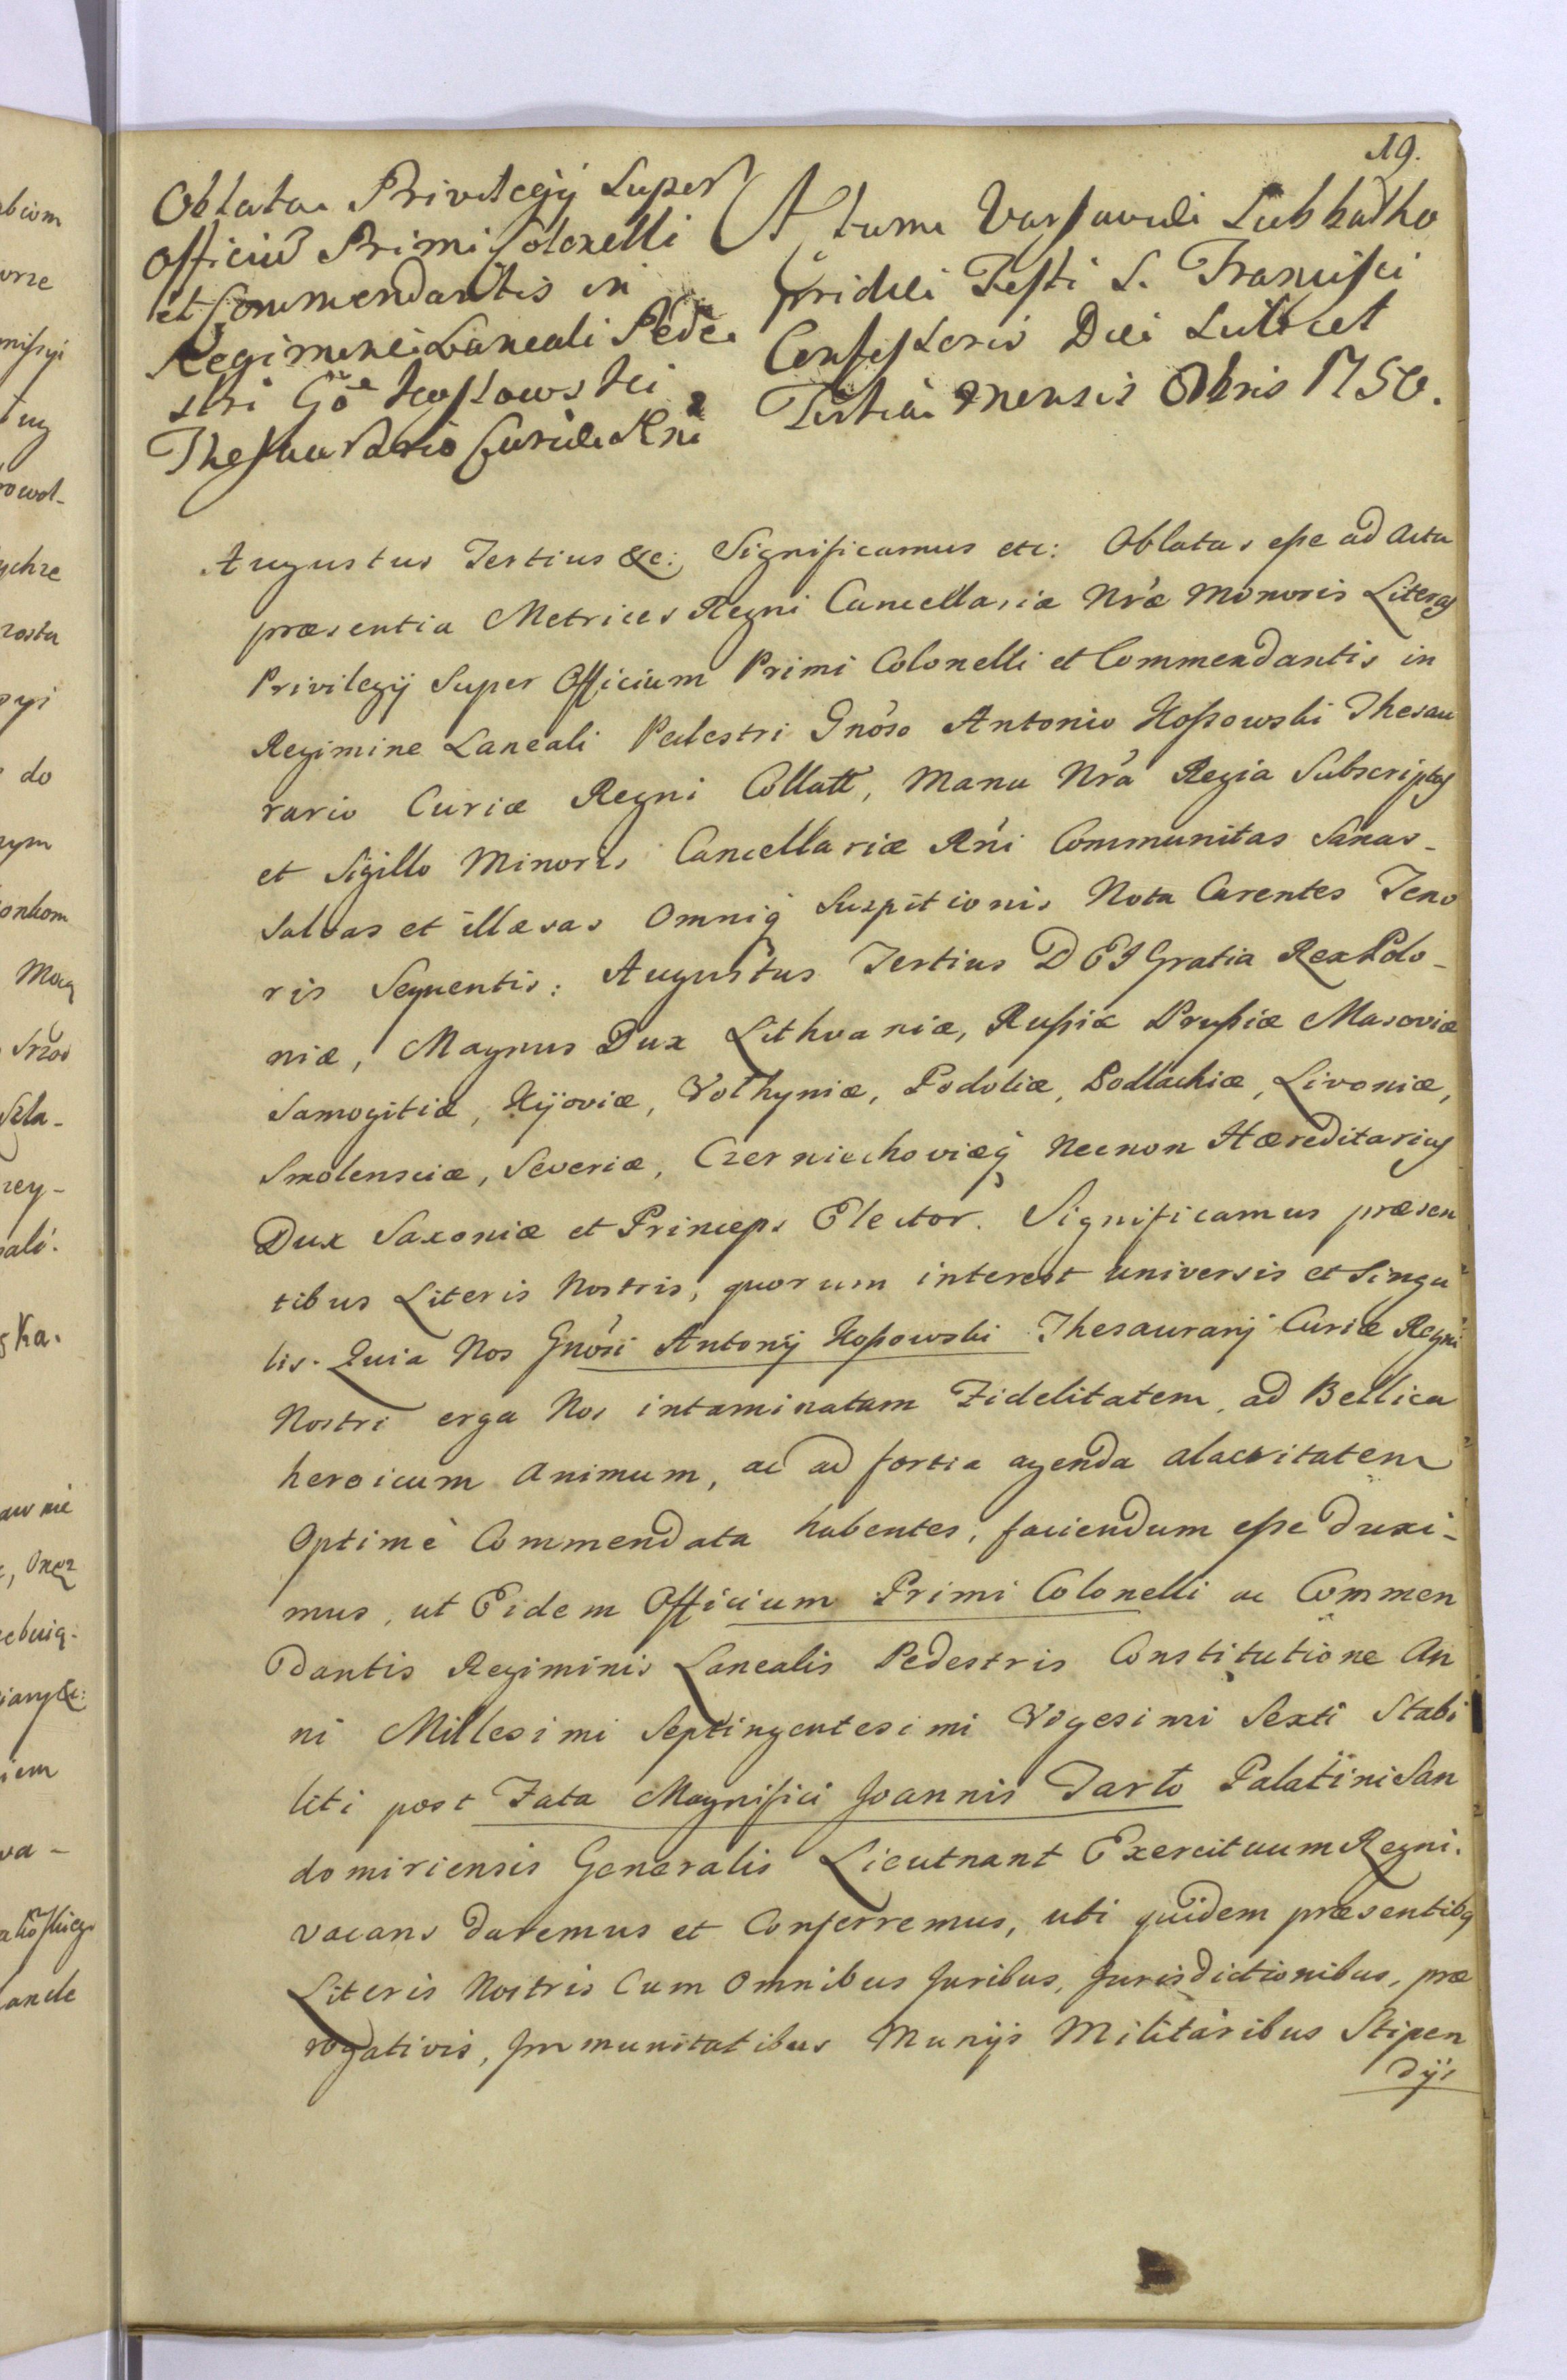 19.
Oblata Privilegij Super
Officiū Primi Colonelli
et Commendantis in
Regimine Laneali Pede
stri Gō Kossowski
Thesaurario Curiæ Rni
Actum Varsaviæ Sabbatho
pridie Festi S. Francisci
Confessoris Die scilicet
Tertia mensis 8bris 1750.
Augustus Tertius &c: Significamus etc: Oblatas esse ad Acta
præsentia Metrices Regni Cancellariæ Nr̃æ Minoris Literas
Privilegij Super Officium Primi Colonelli et Commendantis in
Regimine Laneali Pedestri Gnõso Antonio Kossowski Thesau
rario Curiæ Regni Collatt, Manu Nr̃a Regia Subscriptas
et Sigillo Minoris Cancellariæ Rñi Communitas Sanas-
Salvas et illæsas Omniq Suspitionis Nota Carentes Teno
ris Sequentis: Augustus Tertius DEI Gratia Rex Polo-
niæ, Magnus Dux Lithvaniæ, Russiæ Prussiæ Masoviæ
Samogitiæ, Kijoviæ, Volhyniæ, Podoliæ, Podlachiæ, Livoniæ,
Smolensciæ, Severiæ, Czerniechoviæq Necnon Hæreditarius
Dux Saxoniæ et Princeps Elector. Significamus præsen
tibus Literis Nostris, quorum interest universis et Singu
lis. Quia Nos Gnõsi Antonij Kossowski Thesaurarij Curiæ Regni
Nostri erga Nos intaminatam Fidelitatem, ad Bellica
heroicum Animum, ac ad fortia agenda alacritatem
Optimè Commendata habentes, faciendum esse duxi-
mus, ut Eidem Officium Primi Colonelli ac Commen
dantis Regiminis Lanealis Pedestris Constitutione An
ni Millesimi Septingentesimi Vigesimi Sexti Stabi
liti post Fata Magnifici Joannis Tarło Palatini San
domiriensis Generalis Lieutnant Exercituum Regni.
vacans daremus et Conferremus, uti quidem præsentibq
Literis Nostris Cum Omnibus Juribus, Jurisdictionibus, præ
rogativis, Immunitatibus Munijs Militaribus Stipen
dijs